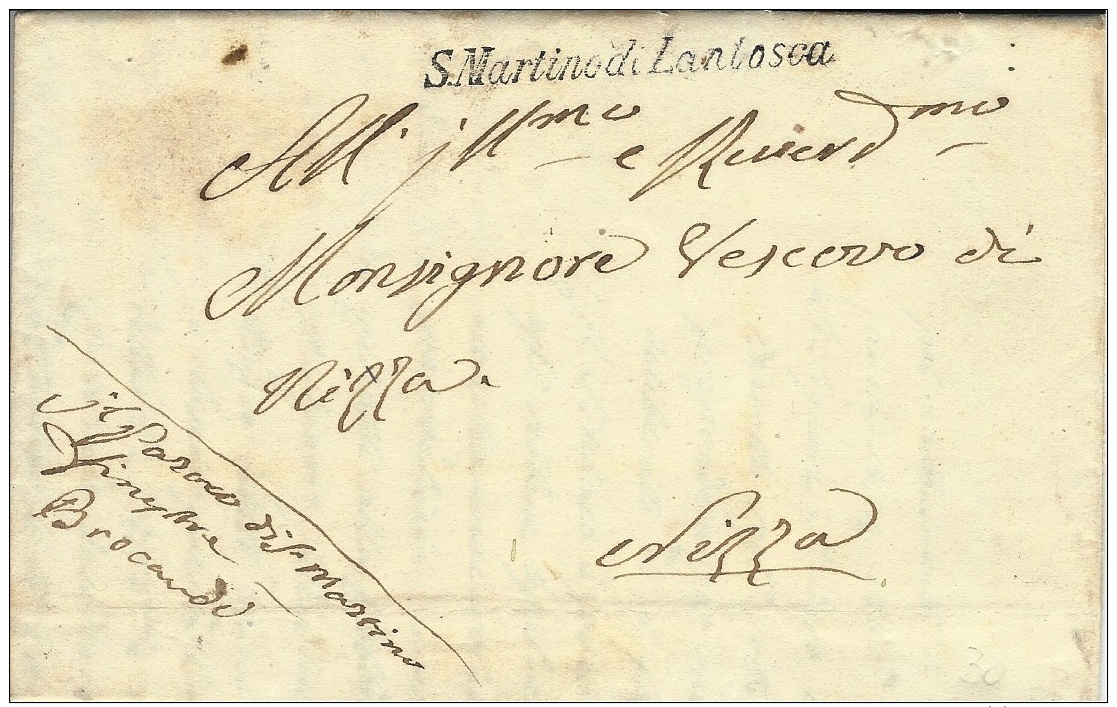 S. Martino di Lantosca
All' Ill.mo e Reverd.mo
Monsignore Vescovo di
Nizza.
Nizza
il Paroco di S. Martino
Brocardi
30